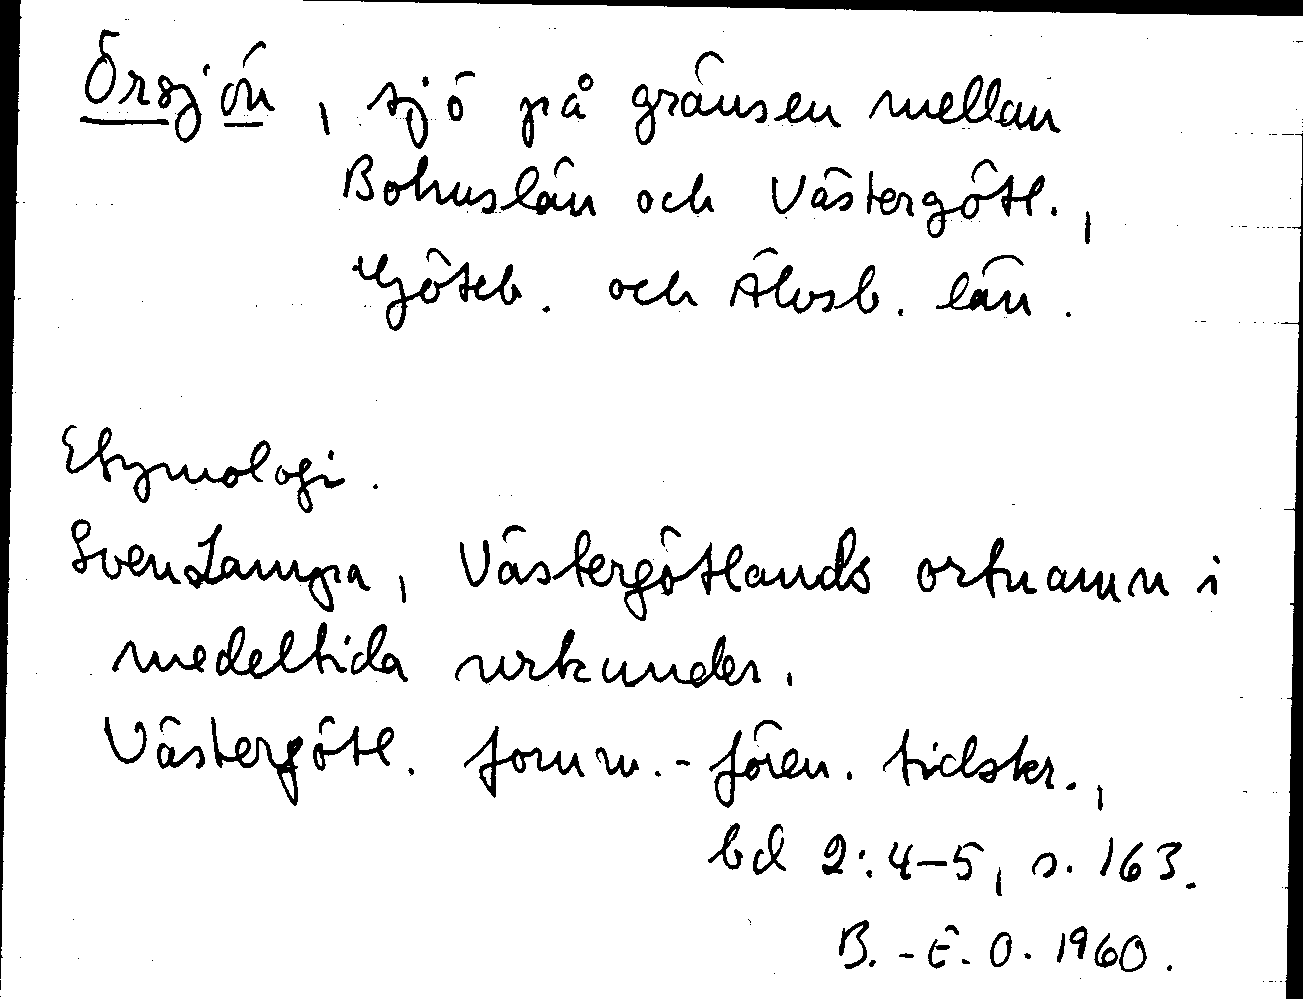 Örsjön, sjö på gränsen mellan
Bohuslän och Västergötl.,
Göteb. och Älvsb. län.
Etymologi.
Sven Lampa, Västergötlands ortnamn i
medeltida urkunder.
Västergötl. fornm.-fören. tidskr.,
bd 2:4-5, s. 163.
B.-E. O. 1960.